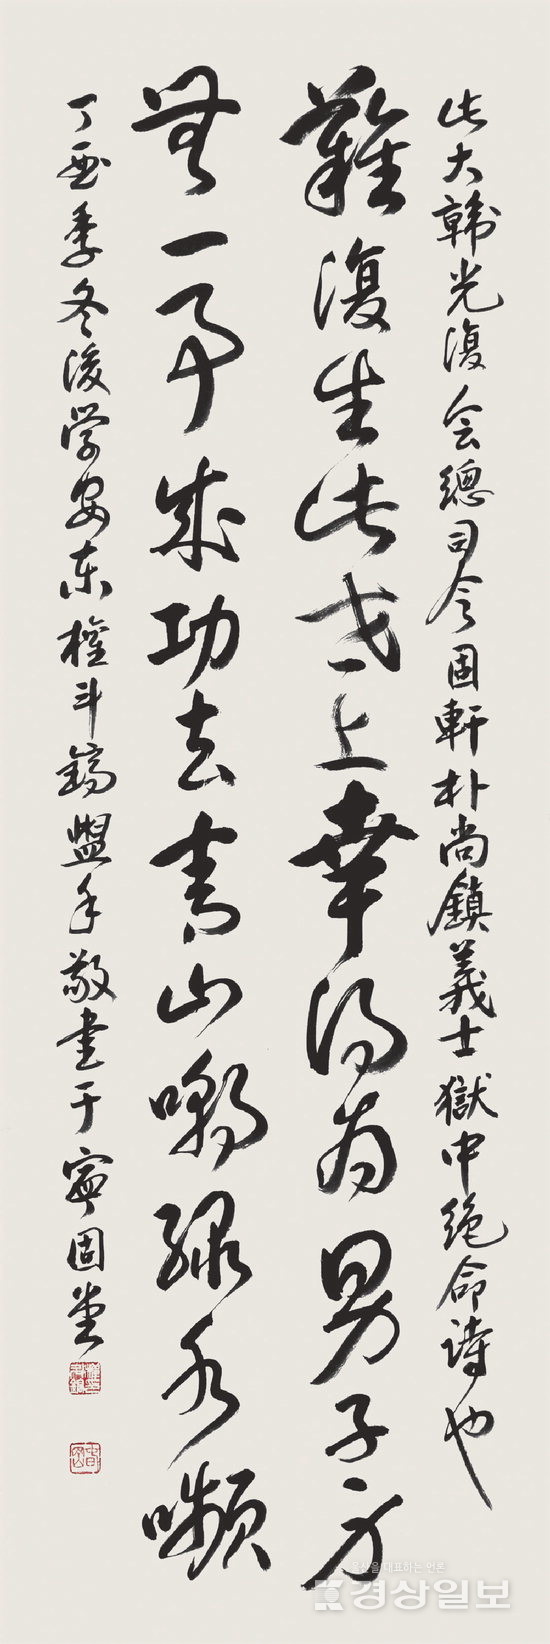 此大韓光復会總司令固軒朴尚鎮義士獄中絶命詩也
難復生此世上幸得為男子身
無一事成功去青山嘲綠水嚬
丁酉季冬後学安東權斗鎬盥手敬書于寧固堂
울산을 대표하는 언론
경상일보